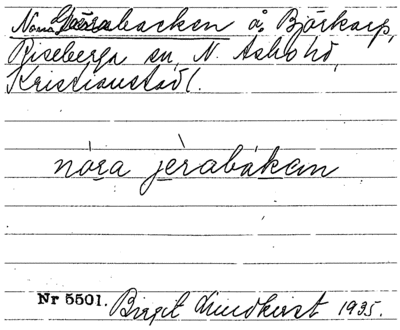 Norra Görabacken å Björkarp,
Riseberga sn, N. Åsbo hd,
Kristianstad l.
nòra jèrabákan
Nr 5501. Birgit Lundkvist 1935.